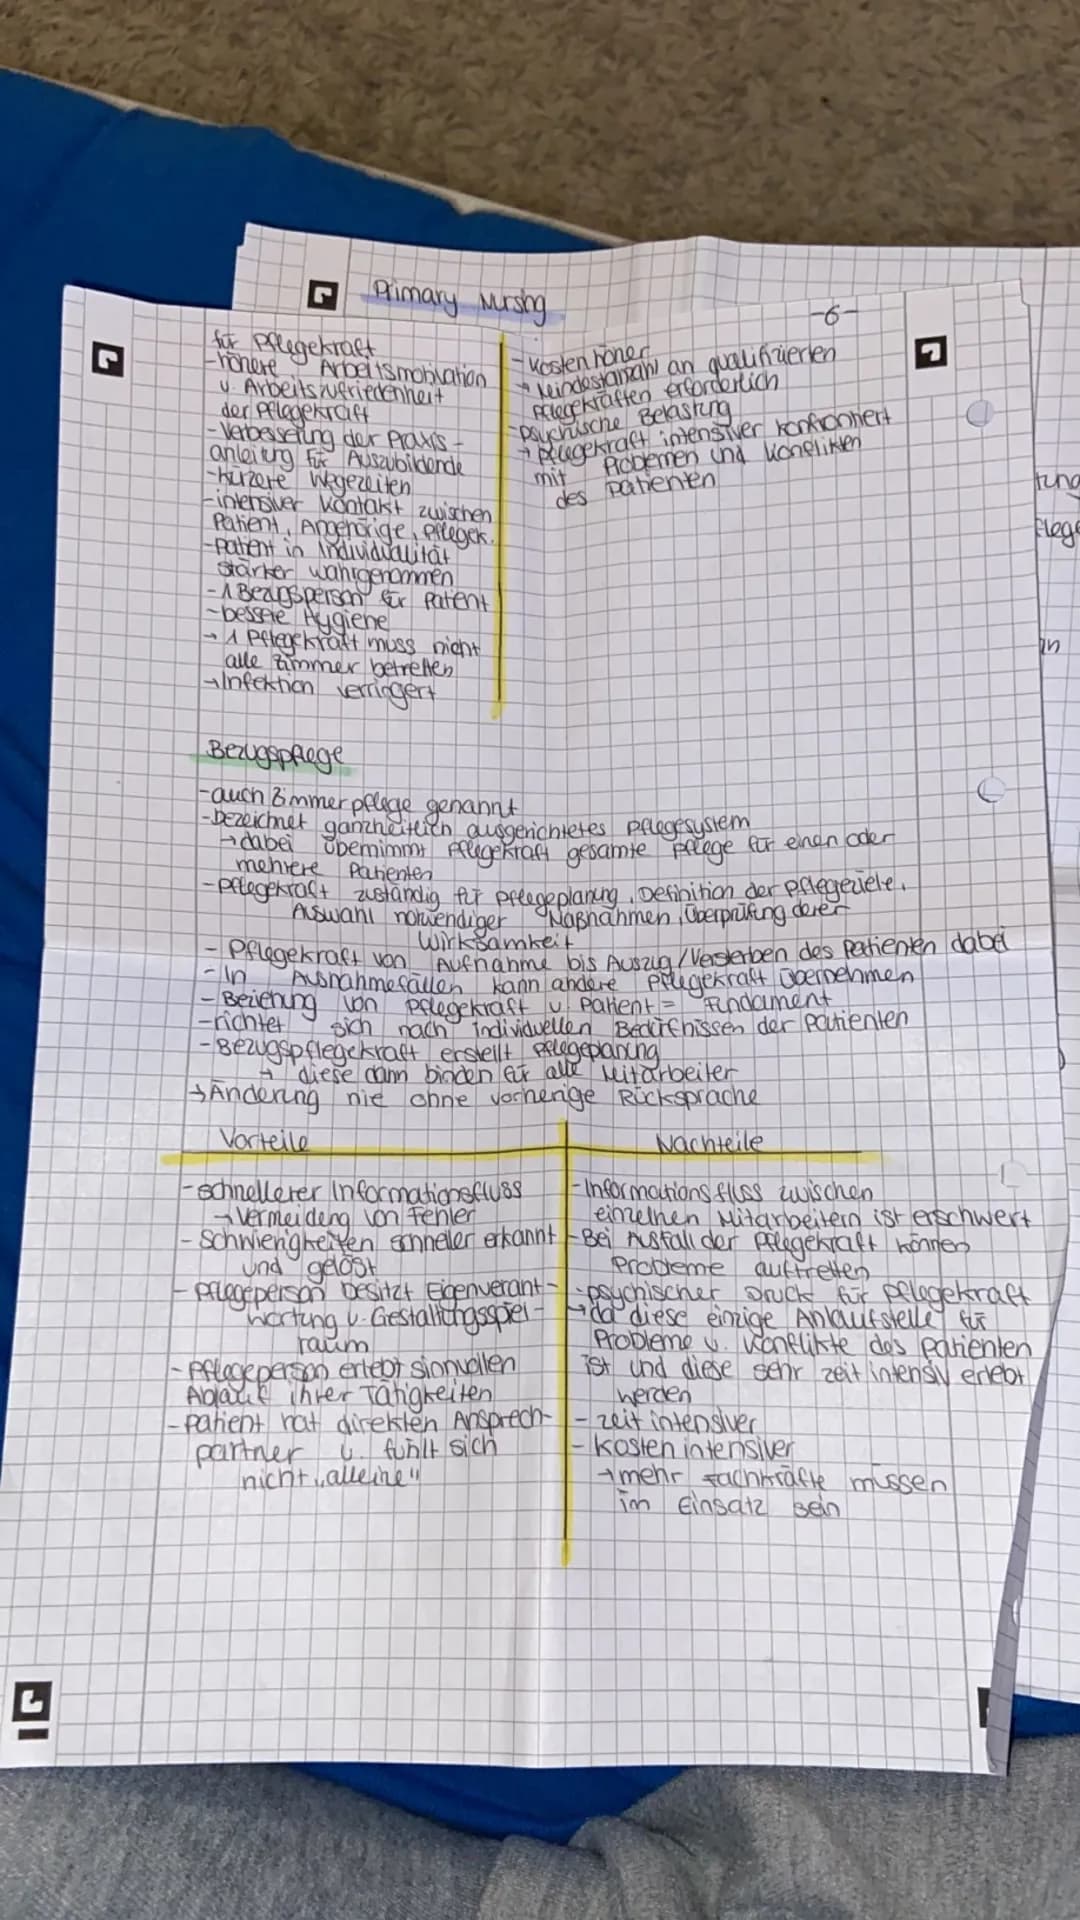 Primary Nursing
-6-
für Pflegekraft
-höhere Arbeitsmotivation
u. Arbeitszufriedenheit
der Pflegekraft
-Verbesserung der Praxis-
anleitung für Auszubildende
-kürzere Wegezeiten
-intensiver Kontakt zwischen
Patient, Angehörige, Pflegek.
-Patient in Individualität
stärker wahrgenommen
-1 Bezugsperson für Patient
-bessere Hygiene
→ 1 Pflegekraft muss nicht
alle Zimmer betreten
→Infektion verringert
-Kosten höher
→ Mindestanzahl an qualifizierten
Pflegekräften erforderlich
-psychische Belastung
→ Pflegekraft intensiver konfrontiert
mit Problemen und Konflikten
des Patienten
Bezugspflege
-auch Zimmerpflege genannt
-bezeichnet ganzheitlich ausgerichtetes Pflegesystem
→dabei übernimmt Pflegekraft gesamte Pflege für einen oder
mehrere Patienten
-Pflegekraft zuständig für Pflegeplanung, Definition der Pflegeziele,
Auswahl notwendiger Maßnahmen, Überprüfung derer
Wirksamkeit
- Pflegekraft von Aufnahme bis Auszug/Versterben des Patienten dabei
- In Ausnahmefällen kann andere Pflegekraft übernehmen
- Beziehung von Pflegekraft u. Patient = Fundament
-richtet sich nach individuellen Bedürfnissen der Patienten
-Bezugspflegekraft erstellt Pflegeplanung
→ diese dann binden für alle Mitarbeiter
→Änderung nie ohne vorherige Rücksprache
Vorteile
Nachteile
-schnellerer Informationsfluss
→Vermeidung von Fehler
- Schwierigkeiten schneller erkannt
und gelöst
- Pflegeperson besitzt Eigenverant-
wortung u. Gestaltungsspiel-
raum
- Pflegeperson erlebt sinnvollen
Ablauf ihrer Tätigkeiten
-Patient hat direkten Ansprech-
partner u. fühlt sich
nicht „alleine"
-Informationsfluss zwischen
einzelnen Mitarbeitern ist erschwert
-Bei Ausfall der Pflegekraft können
Probleme auftreten
-psychischer Druck für Pflegekraft
→da diese einzige Anlaufstelle für
Probleme u. Konflikte des Patienten
ist und diese sehr zeitintensiv erlebt
werden
- zeitintensiver
- Kostenintensiver
→mehr Fachkräfte müssen
im Einsatz sein